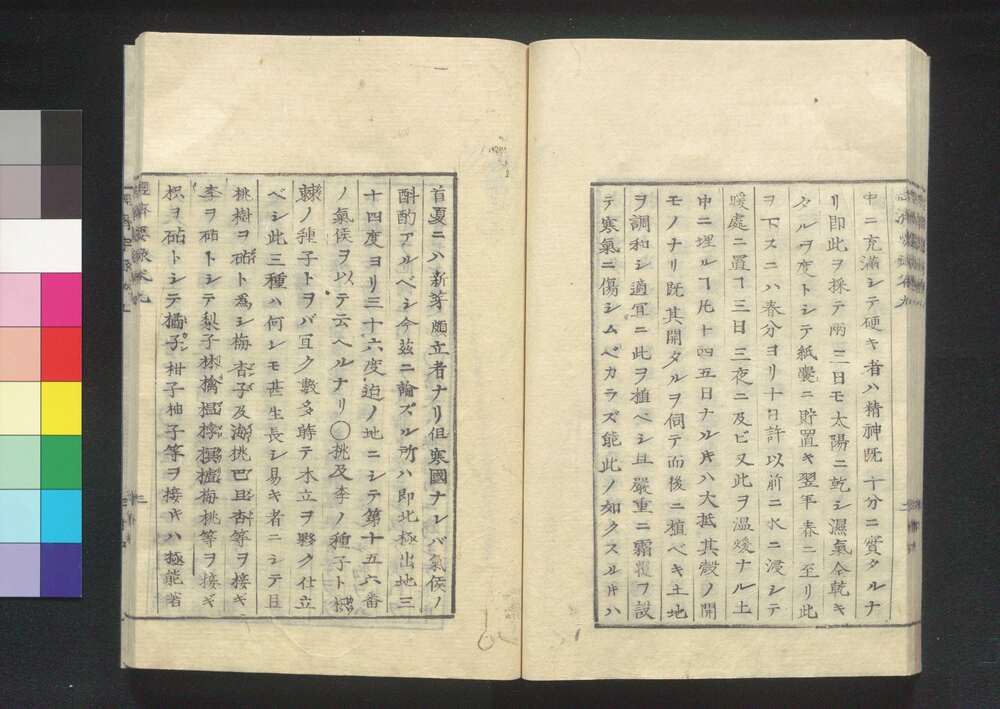 中ニ充滿シテ硬キ者ハ精神既ニ十分ニ實タルナ
リ即此ヲ採テ兩三日モ太陽ニ乾シ濕氣全乾キ
タルヲ度トシテ紙囊ニ貯置キ翌年春ニ至リ此
ヲ下スニハ春分ヨリ十日許以前ニ水ニ浸シテ
暖處ニ置ヿ三日三夜ニ及ビ又此ヲ温煖ナル土
中ニ埋ルヿ凡十四五日ナルキハ大抵其殻ノ開
モノナリ既其開タルヲ伺テ而後ニ植ベキ土地
ヲ調和シ適宜ニ此ヲ植ベシ且嚴重ニ霜覆ヲ設
テ寒氣ニ傷シムベカラズ能此ノ如クスルキハ
首夏ニハ新芽頗立者ナリ但寒國ナレバ氣候ノ
斟酌アルベシ今茲ニ論ズル所ハ即北極出地三
十四度ヨリ三十六度迫ノ地ニシテ第十五六番
ノ氣候ヲ以テ云ヘルナリ〇桃及李ノ種子ト
棘ノ種子トヲバ宜ク數多蒔テ木立ヲ夥ク仕立
ベシ此三種ハ何レモ甚生長シ易キ者ニシテ且
桃樹ヲ砧ト爲シ梅杏子及海桃巴旦杏等ヲ接ギ
李ヲ砧トシテ梨子林檎榲桲樝梅桃等ヲ接ギ
枳ヲ砧トシテ橘子柑子柚子等ヲ接キハ極能著